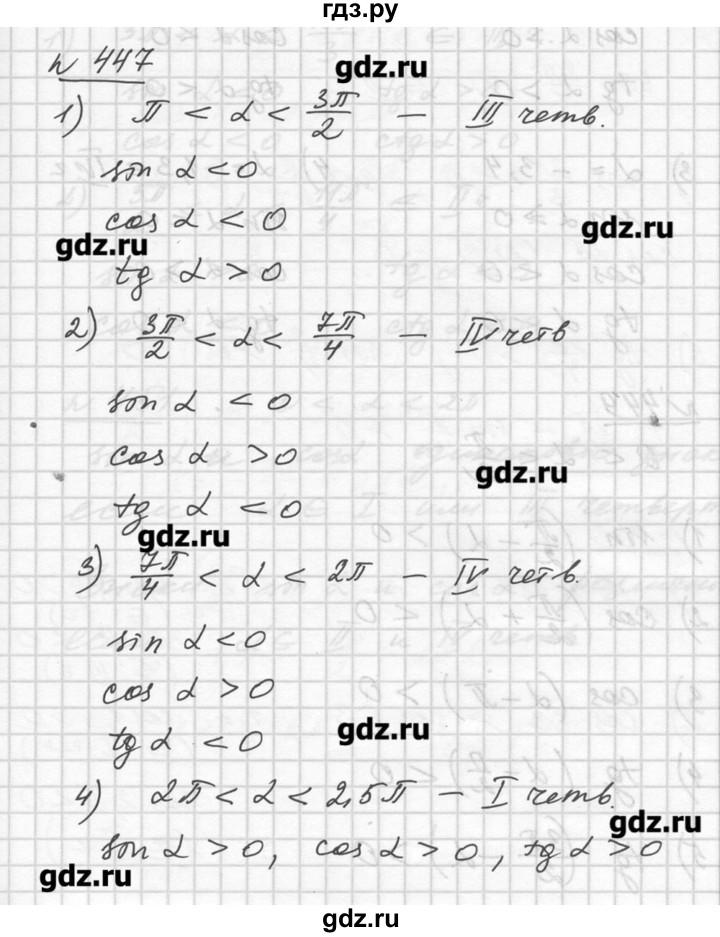 гдз.ру
№ 447
gdz.ru
1) π < α < 3π/2 — III четв.
sin α < 0
cos α < 0
gdz.ru
gdz.ru
tg α > 0
2) 3π/2 < α < 7π/4 — IV четв
sin α < 0
cos α > 0
gdz.ru
tg α < 0
gdz.ru
3) 7π/4 < α < 2π — IV четв.
sin α < 0
cos α > 0
gdz.ru
tg α < 0
4) 2π < α < 2,5π — I четв.
gdz.ru
sin α > 0, cos α > 0, tg α > 0
gdz.ru
gdz.ru